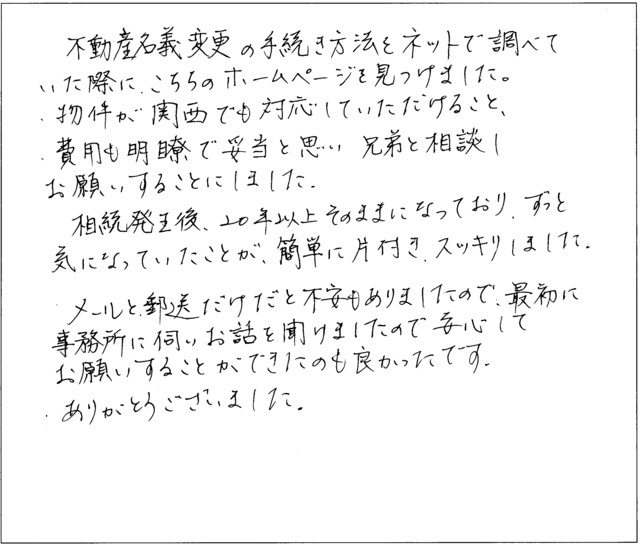 不動産名義変更の手続き方法をネットで調べて
いた際に、こちらのホームページを見つけました。
・物件が関西でも対応していただけること、
・費用も明瞭で妥当と思い 兄弟と相談し
お願いすることにしました。
相続発生後、20年以上そのままになっており、ずっと
気になっていたことが、簡単に片付き、スッキリしました。
メールと郵送だけだと不安もありましたので、最初に
事務所に伺いお話を聞けましたので安心して
お願いすることができたのも良かったです。
・ありがとうございました。